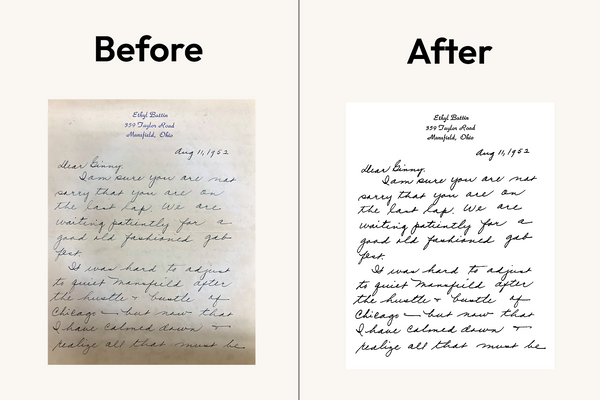 Before
Ethyl Battin
359 Taylor Road
Mansfield, Ohio
Aug 11, 1952
Dear Ginny.
I am sure you are not
sorry that you are on
the last lap. We are
waiting patiently for a
good old fashioned gab
fest.
It was hard to adjust
to quiet Mansfield after
the hustle & bustle of
Chicago — but now that
I have calmed down &
realize all that must be
After
Ethyl Battin
359 Taylor Road
Mansfield, Ohio
Aug 11, 1952
Dear Ginny.
I am sure you are not
sorry that you are on
the last lap. We are
waiting patiently for a
good old fashioned gab
fest.
It was hard to adjust
to quiet Mansfield after
the hustle & bustle of
Chicago — but now that
I have calmed down &
realize all that must be